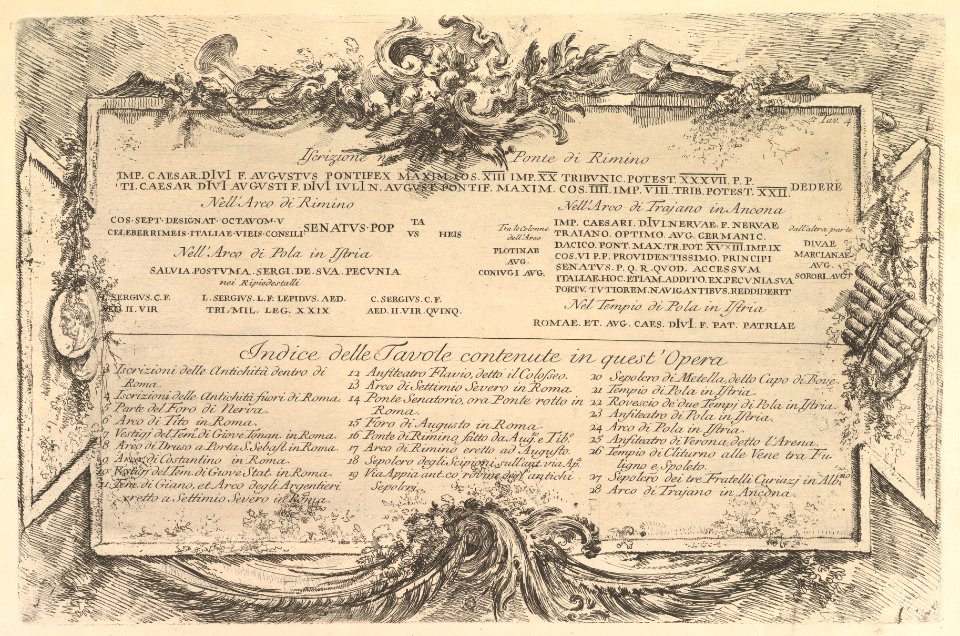 Tav. 4
Iscrizione Ponte di Rimino
IMP. CAESAR. DIVI F. AVGVSTVS PONTIFEX MAXIM. COS. XIII IMP. XX TRIBVNIC. POTEST. XXXVII. P. P.
TI. CAESAR DIVI AVGVSTI F. DIVI IVLI N. AVGVST. PONTIF. MAXIM. COS. IIII. IMP. VIII. TRIB. POTEST. XXII. DEDERE
Nell'Arco di Rimino
COS. SEPT. DESIGNAT. OCTAVOM. V
CELEBERRIMEIS. ITALIAE. VIEIS. CONSILI SENATVS. POP
TA
VS HEIS
Nell'Arco di Pola in Istria
SALVIA. POSTVMA. SERGI. DE. SVA. PECVNIA
nei Ripiedestalli
L. SERGIVS. C. F.
AED. II. VIR
L. SERGIVS. L. F. LEPIDVS. AED.
TRI. MIL. LEG. XXIX
C. SERGIVS. C. F.
AED. II. VIR. QVINQ.
Nell'Arco di Trajano in Ancona
Tra le Colonne
dell'Arco
PLOTINAE
AVG.
CONIVGI AVG.
IMP. CAESARI. DIVI. NERVAE. F. NERVAE
TRAIANO. OPTIMO. AVG. GERMANIC.
DACICO. PONT. MAX. TR. POT. XVIIII. IMP. IX
COS. VI. P. P. PROVIDENTISSIMO. PRINCIPI
SENATVS. P. Q. R. QVOD. ACCESSVM
ITALIAE. HOC. ETIAM. ADDITO. EX. PECVNIA. SVA
PORTV. TVTIOREM. NAVIGANTIBVS. REDDIDERIT
dall'altra parte
DIVAE
MARCIANAE
AVG.
SORORI. AVG.
Nel Tempio di Pola in Istria
ROMAE. ET. AVG. CAES. DIVI. F. PAT. PATRIAE
Indice delle Tavole contenute in quest'Opera
3 Iscrizioni delle Antichità dentro di
Roma.
4 Iscrizioni delle Antichità fuori di Roma.
5 Parte del Foro di Nerva.
6 Arco di Tito in Roma.
7 Vestigj del Tem. di Giove Tonan. in Roma.
8 Arco di Druso a Porta S. Sebast. in Roma.
9 Arco di Costantino in Roma.
10 Vestigj del Tem. di Giove Stat. in Roma.
11 Tem. di Giano, et Arco degli Argentieri
eretto a Settimio Severo in Roma
12 Anfiteatro Flavio, detto il Colosseo.
13 Arco di Settimio Severo in Roma.
14 Ponte Senatorio, ora Ponte rotto in
Roma.
15 Foro di Augusto in Roma.
16 Ponte di Rimino, fatto da Aug. e Tib.
17 Arco di Rimino eretto ad Augusto.
18 Sepolcro degli Scipioni sull'ant. via Ap.
19 Via Appia ant. co' rovine degl'antichi
Sepolcri.
20 Sepolcro di Metella, detto Capo di Bove.
21 Tempio di Pola in Istria.
22 Rovescio de due Tempj di Pola in Istria.
23 Anfiteatro di Pola in Istria.
24 Arco di Pola in Istria.
25 Anfiteatro di Verona detto l'Arena.
26 Tempio di Clitunno alle Vene tra Fu-
ligno e Spoleto.
27 Sepolcro dei tre Fratelli Curiazj in Alb.no
28 Arco di Trajano in Ancona.